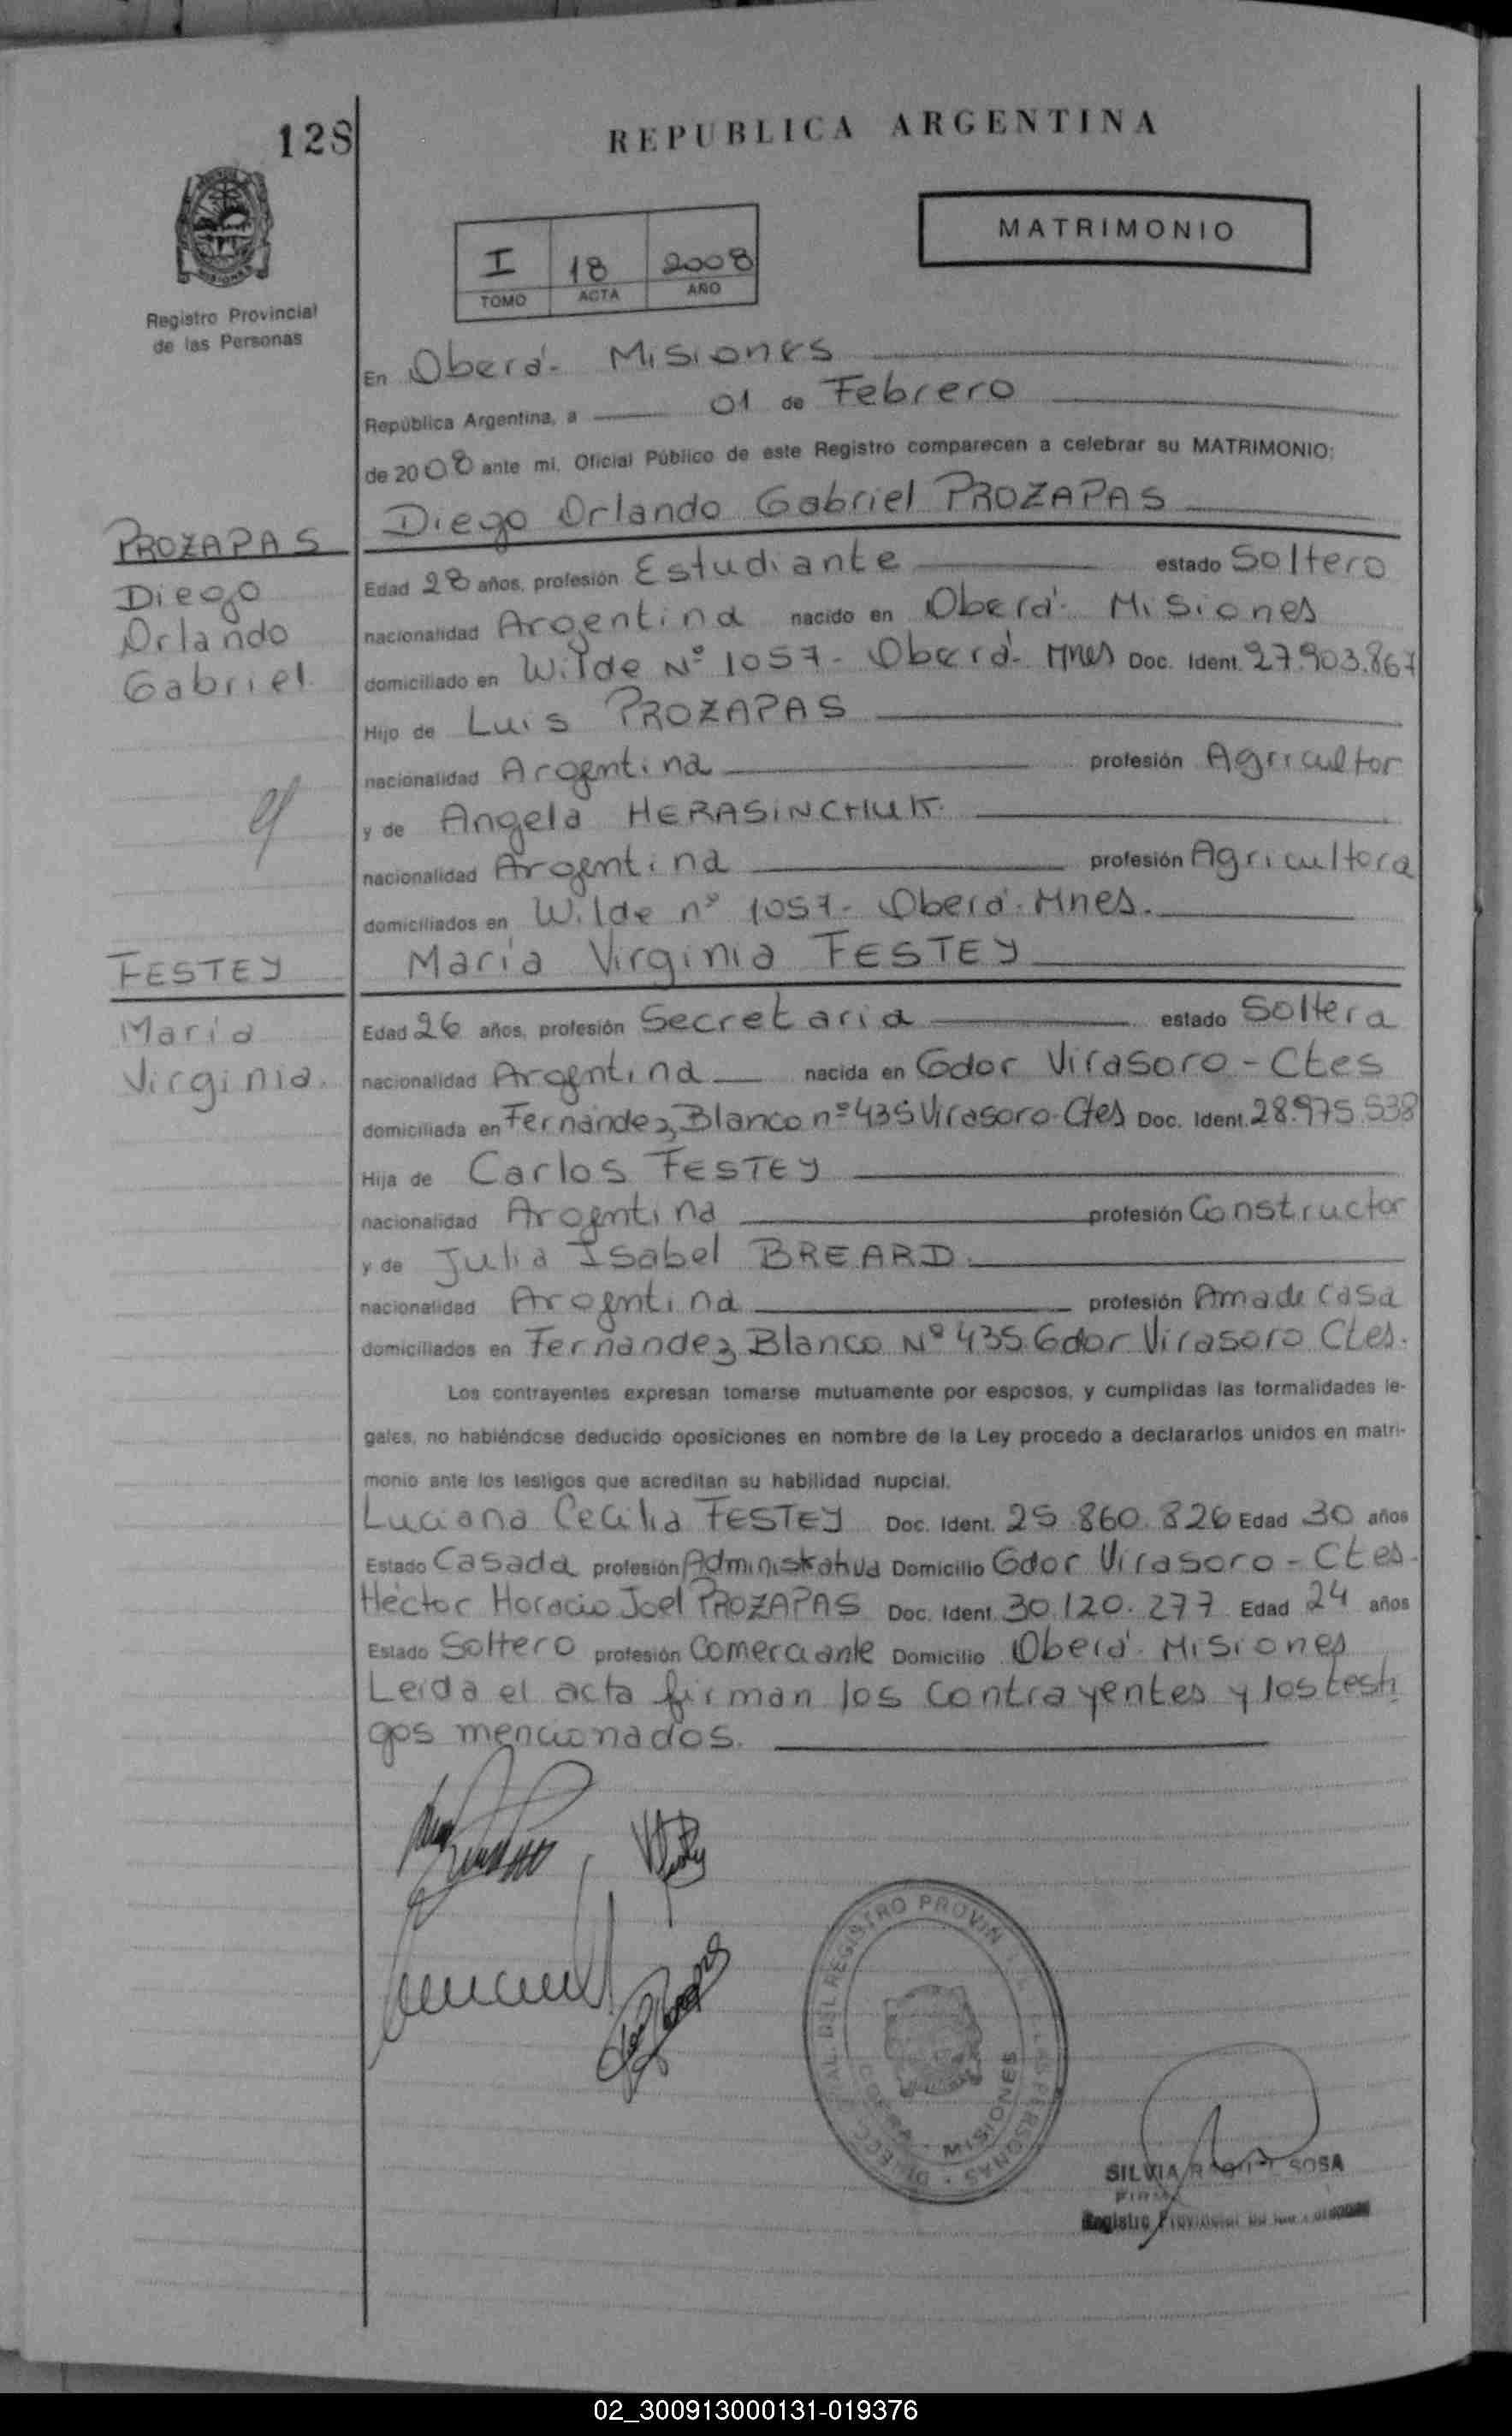 128
REPUBLICA ARGENTINA
MISIONES
Registro Provincial
de las Personas
I 18 2008
TOMO ACTA AÑO
MATRIMONIO
En Oberá - Misiones
República Argentina, a 01 de Febrero
de 2008 ante mi, Oficial Público de este Registro comparecen a celebrar su MATRIMONIO:
Diego Orlando Gabriel PROZAPAS
PROZAPAS
Diego
Orlando
Gabriel
Edad 28 años, profesión Estudiante estado Soltero
nacionalidad Argentina nacido en Oberá - Misiones
domiciliado en Wilde Nº 1057 - Oberá - Mnes Doc. Ident. 27.903.867
Hijo de Luis PROZAPAS
nacionalidad Argentina profesión Agricultor
y de Angela HERASiNCHUK
nacionalidad Argentina profesión Agricultora
domiciliados en Wilde nº 1057 - Oberá - Mnes.
María Virginia FESTEY
FESTEY
María
Virginia.
Edad 26 años, profesión Secretaria estado Soltera
nacionalidad Argentina nacida en Gdor Virasoro - Ctes
domiciliada en Fernández Blanco nº 435 Virasoro - Ctes Doc. Ident. 28.975.538
Hija de Carlos FESTEY
nacionalidad Argentina profesión Constructor
y de Julia Isabel BREARD.
nacionalidad Argentina profesión Ama de casa
domiciliados en Fernandez Blanco Nº 435 Gdor Virasoro Ctes.
Los contrayentes expresan tomarse mutuamente por esposos, y cumplidas las formalidades le-
gales, no habiéndose deducido oposiciones en nombre de la Ley procedo a declararlos unidos en matri-
monio ante los testigos que acreditan su habilidad nupcial.
Luciana Cecilia FESTEY Doc. Ident. 25.860.826 Edad 30 años
Estado Casada profesión Administrativa Domicilio Gdor Virasoro - Ctes -
Héctor Horacio Joel PROZAPAS Doc. Ident. 30.120.277 Edad 24 años
Estado Soltero profesión Comerciante Domicilio Oberá - Misiones
Leida el acta firman los contrayentes y los testi
gos mencionados.
REGISTRO PROVIN
PERSONAS
MISIONES
SILVIA SOSA
Registro Provincial
02_300913000131-019376